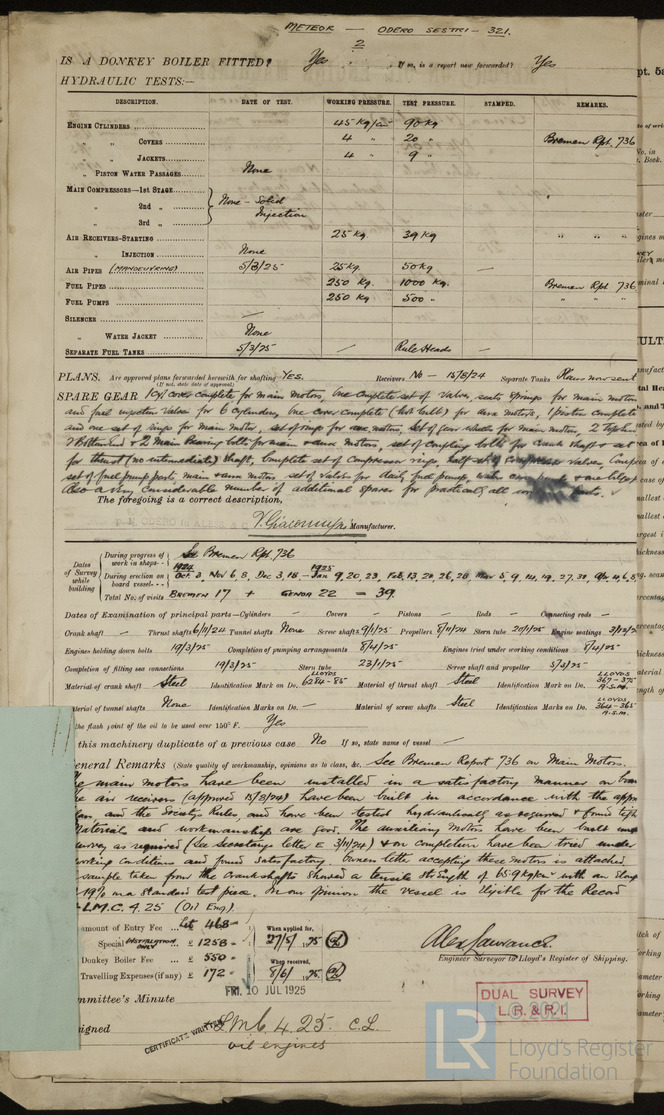 METEOR — ODERO SESTRI — 321.
2
IS A DONKEY BOILER FITTED? Yes If so, is a report now forwarded? Yes
HYDRAULIC TESTS:—
DESCRIPTION. DATE OF TEST. WORKING PRESSURE. TEST PRESSURE. STAMPED. REMARKS.
ENGINE CYLINDERS 45 Kg/cm² 90 Kg
" COVERS 4 " 20 " Bremen Rpt. 736
" JACKETS 4 " 9 "
" PISTON WATER PASSAGES None
MAIN COMPRESSORS—1st STAGE
" 2nd " None - Solid
" 3rd " Injection
AIR RECEIVERS—STARTING 25 Kg. 39 Kg " " "
" INJECTION None
AIR PIPES (MANOEUVRING) 5/3/25 25 Kg. 50 Kg —
FUEL PIPES 250 Kg. 1000 Kg. Bremen Rpt 736
FUEL PUMPS 250 Kg 500 " " " "
SILENCER —
" WATER JACKET None
SEPARATE FUEL TANKS 5/3/25 — Rule Heads —
PLANS. Are approved plans forwarded herewith for shafting YES. Receivers No — 15/8/24 Separate Tanks Plans now sent
(If not, state date of approval)
SPARE GEAR 1 Cyl cover complete for main motors, One complete set of valves, seats springs for main motors
and fuel injection valves for 6 cylinders, one cover complete (hot bulb) for aux motors, 1 piston complete
and one set of rings for main motor, set of rings for aux motors, set of gear wheels for main motors, 2 Top end
2 Bottom End & 2 Main Bearing bolts for main & aux motors, set of coupling bolts for crank shaft & set
for thrust (no intermediate) shaft, Complete set of compressor rings, half set of compressor valves,
set of fuel pump parts, main & aux motors set of valves for daily fuel pump,
Also a very considerable number of additional spares for practically all
The foregoing is a correct description,
Manufacturer.
Dates of Survey while building
During progress of work in shops - - See Bremen Rpt 736
During erection on board vessel - - - 1924 Oct 3, Nov 6, 8, Dec 3, 18 — 1925 Jan 9, 20, 23, Feb, 13, 20, 26, 28 Mar 5, 9, 14, 19, 27, 30, Apr 4, 6, 8
Total No. of visits BREMEN 17 + GENOA 22 = 39.
Dates of Examination of principal parts—Cylinders — Covers — Pistons — Rods — Connecting rods —
Crank shaft — Thrust shaft 6/11/24 Tunnel shafts None Screw shaft 9/1/25 Propellers 8/11/24 Stern tube 20/1/25 Engine seatings
Engines holding down bolts 19/3/25 Completion of pumping arrangements 8/4/25 Engines tried under working conditions 8/4/25
Completion of fitting sea connections 19/3/25 Stern tube 23/1/25 Screw shaft and propeller 5/3/25
Material of crank shaft Steel Identification Mark on Do. LLOYDS 6284-85 Material of thrust shaft Steel Identification Mark on Do. LLOYDS 367-375 A.S.M.
Material of tunnel shafts None Identification Marks on Do. — Material of screw shafts Steel Identification Marks on Do. LLOYDS 364-365 A.S.M.
the flash point of the oil to be used over 150° F. Yes
this machinery duplicate of a previous case No If so, state name of vessel —
General Remarks (State quality of workmanship, opinions as to class, &c. See Bremen Report 736 on Main Motors.
main motors have been installed in a satisfactory manner on
air receivers (approved 15/8/24) have been built in accordance with the
and the Societys Rules, and have been tested hydraulically as required & found
Materials and workmanship are good. The auxiliary motors have been built
survey as required (See Secretarys letter E 3/11/24) & on completion have been tried under
working conditions and found satisfactory. Owners letter accepting these motors is attached
sample taken from the crankshafts showed a tensile strength of 65.9 kg/mm² with an
19% on a Standard test piece. In our opinion the vessel is eligible for the Record
L.M.C. 4.25 (Oil Eng)
amount of Entry Fee ... Lit 468 =
Special INSTALLATION ONLY ... £ 1258 =
Donkey Boiler Fee ... £ 550 =
Travelling Expenses (if any) £ 172 =
When applied for, 27/5/1925
When received, 8/6/1925
Alex Lawrance
Engineer Surveyor to Lloyd's Register of Shipping.
FRI. 10 JUL 1925
DUAL SURVEY
L.R. & R.I.
Committee's Minute
Assigned LMC 4.25 C.L.
oil engines
CERTIFICATE WRITTEN
LR
Lloyd's Register
Foundation